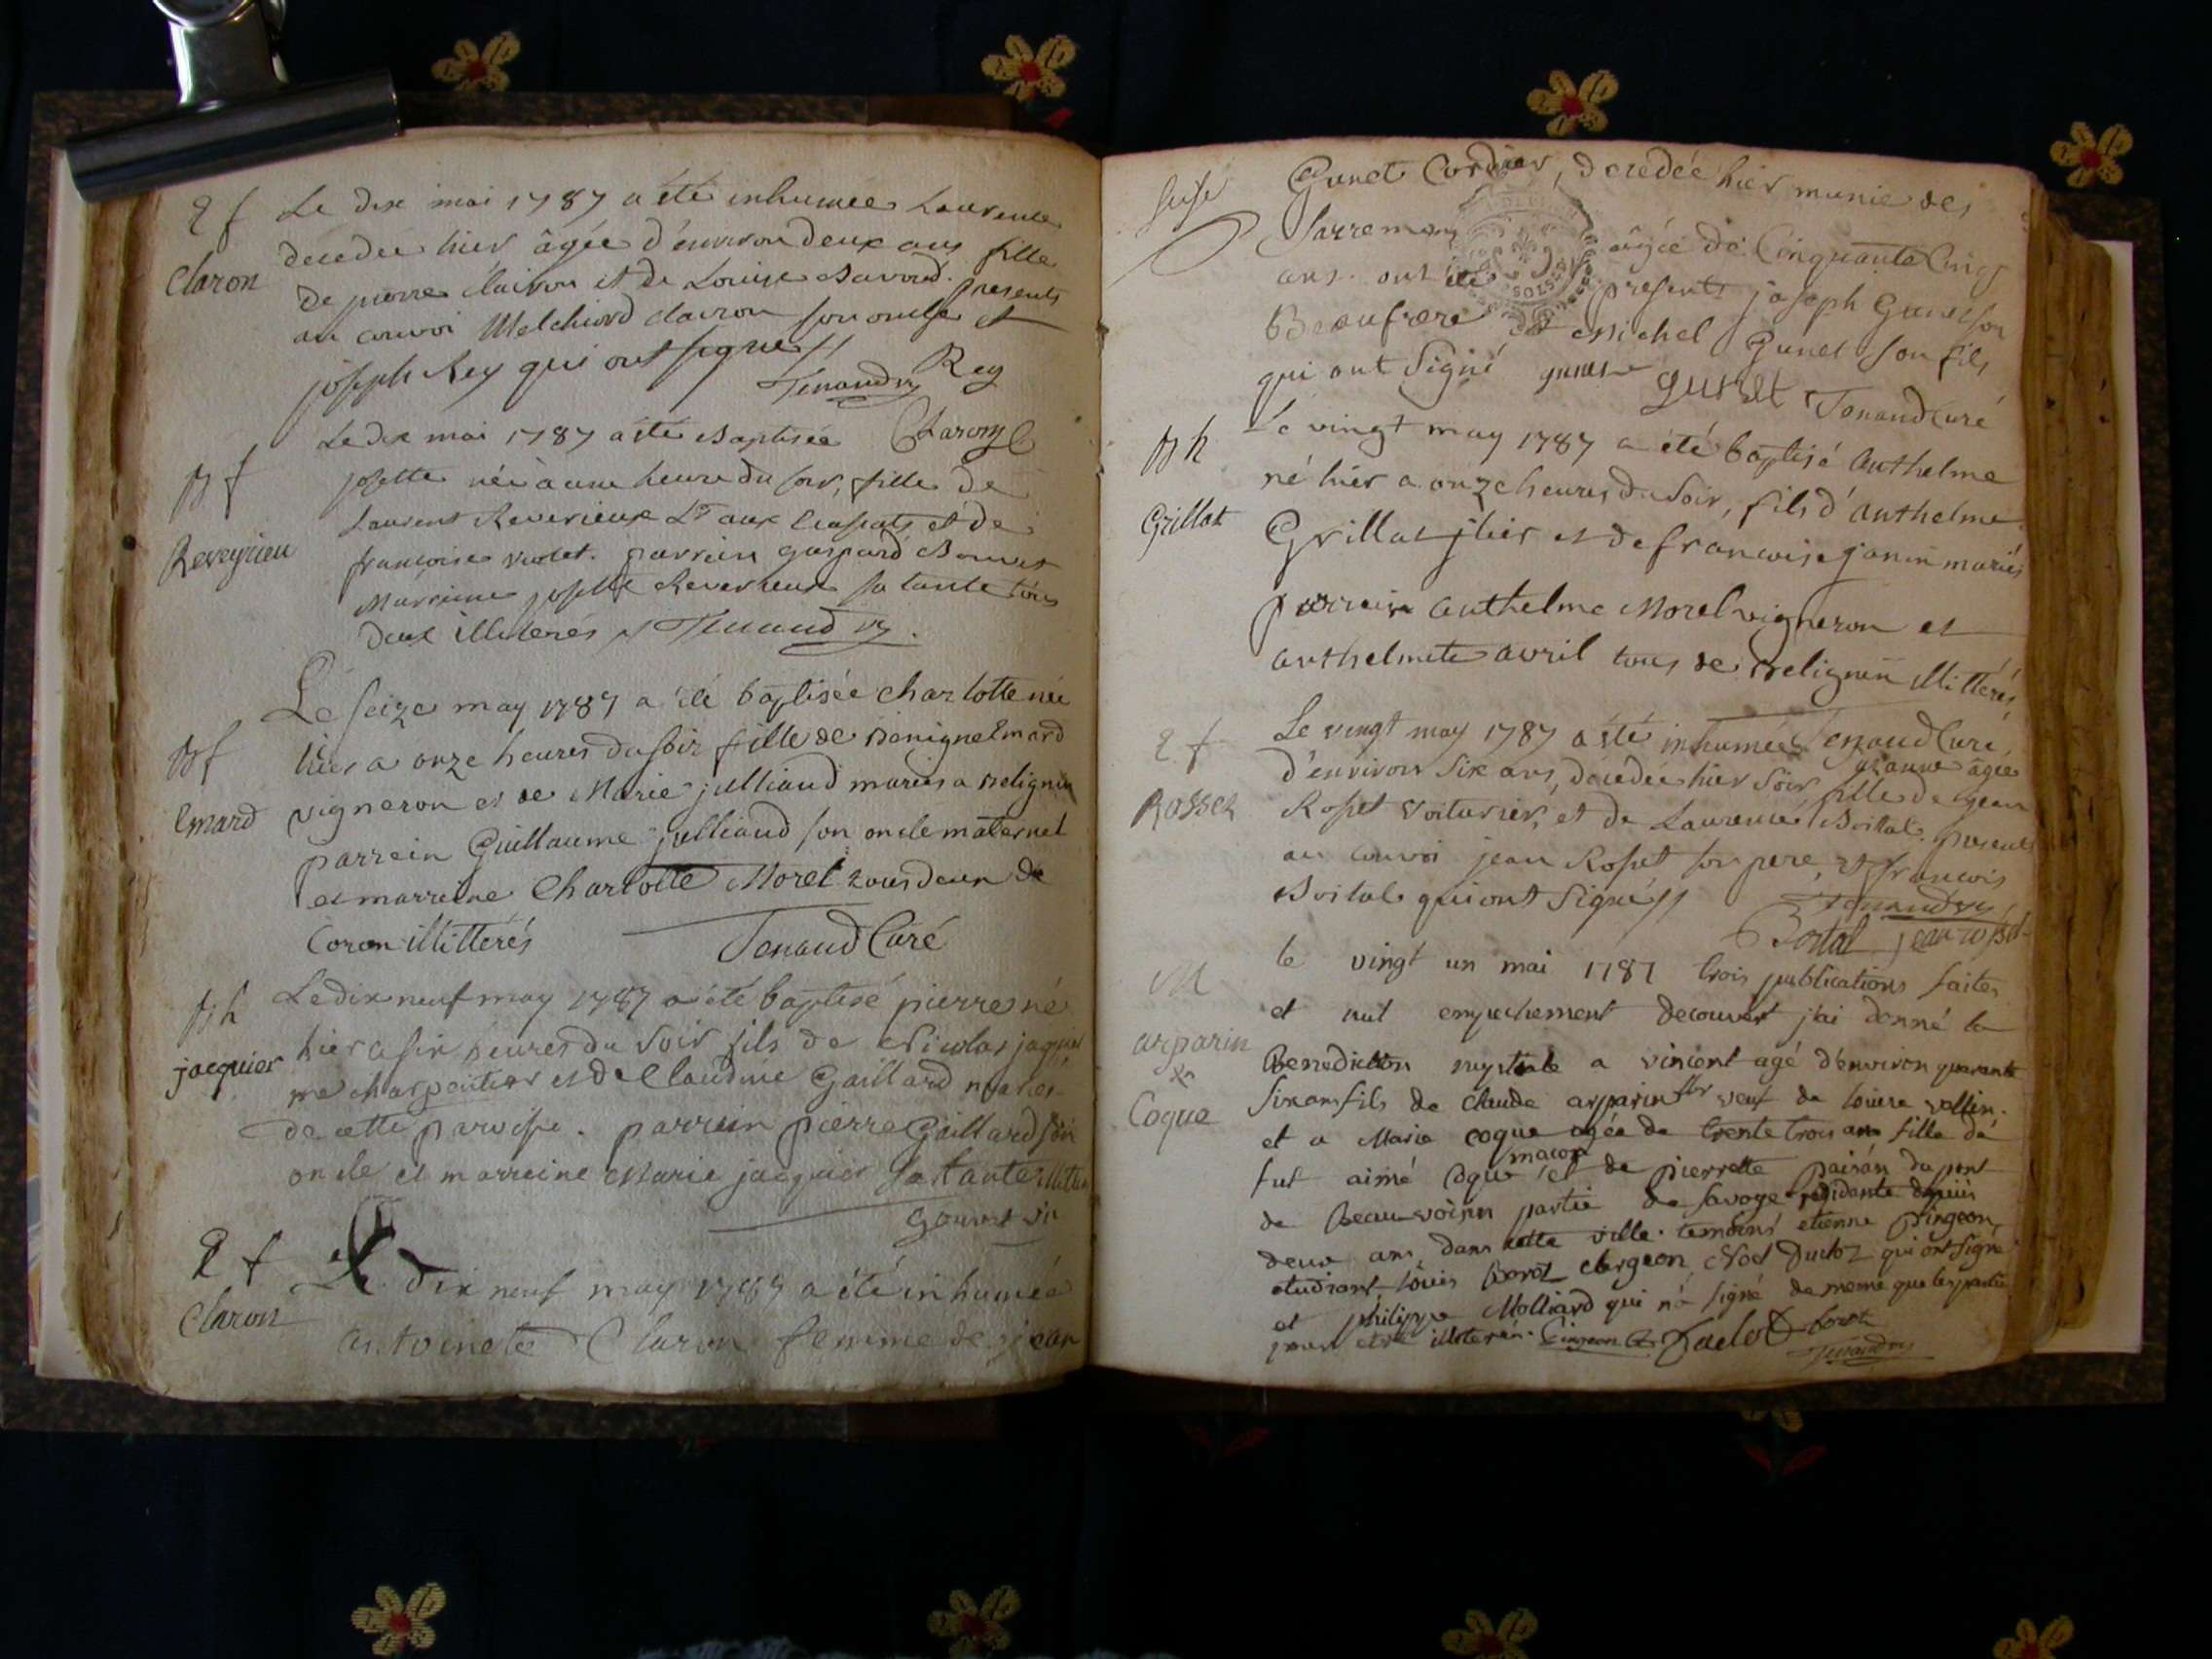 2 f
Claron
Le dix mai 1787 a été inhumée Laurence
decedée hier âgée d'environ deux ans fille
de pierre clairon et de Louise Savoud. presents
au convoi Melchiord clairon son oncle et
joseph Rey qui ont signés //
Tenaud Rey
Claron
Le dix mai 1787 a été Baptisée
B f
Reveyrieu
josette née à une heure du soir, fille de
Laurent Reverieux et de
françoise violet. parrein gaspard Bonnet
Marraine josette Reverieux sa tante tous
deux illiterés // Tenaud
B f
Emard
Le seize may 1787 a été baptisée charlotte née
hier a onze heures du soir fille de Benigne Emard
vigneron et de Marie julliand mariés a Belignin
parrein Guillaume julliand son oncle maternel
et marreine Charlotte Morel tous deux de
Coron illitterés Tenaud Curé
B h
jacquier
Le dix neuf may 1787 a été baptisé pierre né
hier a six heures du soir fils de Nicolas jaquier
me charpentier et de Claudine Gaillard mariés
de cette paroisse. parrein pierre Gaillard son
oncle et marreine Marie jacquier sa tante
2 f
Claron
Le dix neuf may 1787 a été inhumée
antoinete Claron femme de jean
suse
Gunet Cordier, decedée hier munie des
Sacremens âgée de Cinquante Cinq
ans. ont été presents joseph Gunet son
Beaufrere et michel Gunet son fils
qui ont signé gunet gunet Tenaud Curé
B h
Grillat
Le vingt may 1787 a été baptisé Anthelme
né hier a onze heures du soir, fils d'anthelme
Grillat jlier et de francoise janin mariés
parrain anthelme Morel vigneron et
anthelmete avril tous de Belignin illitterés
Tenaud Curé
2 f
Rosset
Le vingt may 1787 a été inhumée anne âgée
d'environ six ans, decedée hier soir fille de jean
Rosset voiturier, et de Laurence Boital. presents
au convoi jean Rosset son pere, et francois
Boital qui ont signé // Tenaud
Boital jean rosset
M
arparin
et
Coque
le vingt un mai 1787 trois publications faites
et nul empechement decouvert j'ai donné la
Benediction nuptiale a vincent agé d'environ quarante
six ans fils de claude arparin veuf de louise vellin.
et a Marie coque agée de trente trois ans fille de
fut aimé coque macon et de pierrette pairan du pont
de Beauvoisin partie de savoye residante depuis
deux ans dans cette ville. temoins etienne pingeon,
etudiant, louis Borot clergeon, Noel Duclot qui ont signé
et philippe Molliard qui n'a signé de meme que les parties
pour etre illiterés. Pingeon Duclot borot
Tenaud